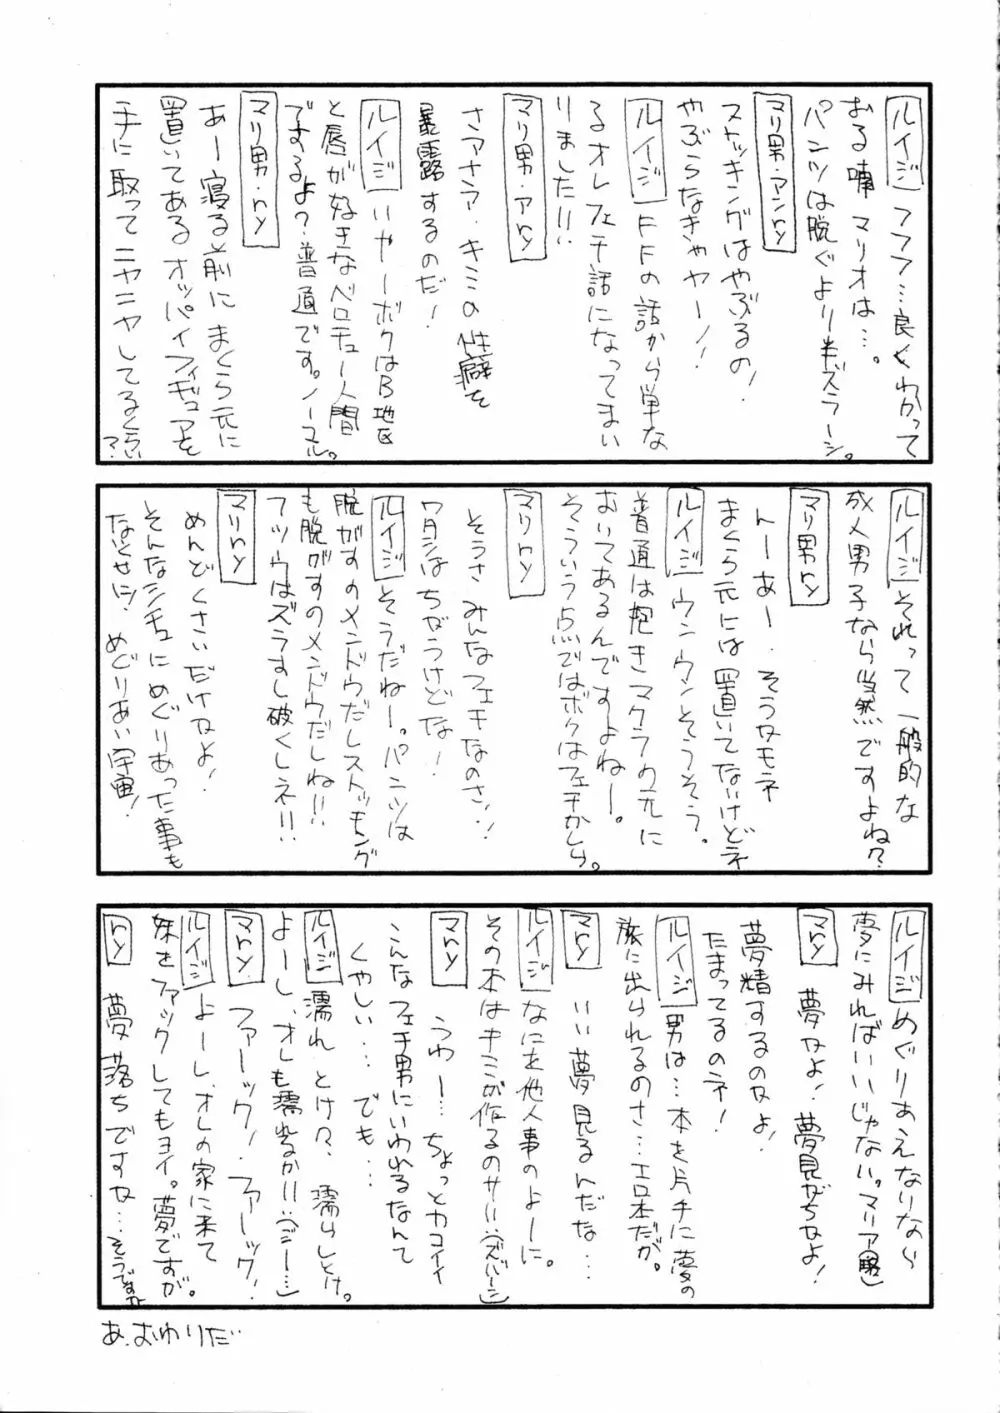 ルイジ フフフ…良くわかって
おる喃 マリオは…。
パンツは脱ぐより半ズラーシ。
マリ男・アンry
ストッキングはやぶるの!
やぶらなきゃヤー!!
ルイジ FFの話から単な
るオレフェチ話になってまい
りました!!!
マリ男・アry
さアナラ・キミの性癖を
暴露するのだ!
ルイジ いやーボクはB地区
と唇が好きなベロチュー人間
ですよ?普通です。ノーマル。
マリ男・ry
あー寝る前にまくら元に
置いてあるオッパイフィギュアを
手に取ってニヤニヤしてるくらい
?
ルイジ それって一般的な
成人男子なら当然ですよね?
マリ男ry
んーあー・そうなモネ
まくら元には置いてないけどネ
ルイジ ウンウンそうそう。
普通は抱きマクラの元に
おいてあるんですよねー。
そういう点ではボクはフェチかしら。
マリry
そうさみんなフェチなのさ!!
ワタシはちがうけどな!
ルイジ そうだねー。パンツは
脱がすのメンドウだしストッキング
も脱がすのメンドウだしね!!
フツウはズラすし破くしネ!!
マリry
めんどくさいだけかよ!
そんなシチュにめぐりあった事も
ないくせに!めぐりあい宇宙!
ルイジ めぐりあえないなら
夢にみればいいじゃない。マリア(略)
マry
夢かよ!夢見がちかよ!
夢精するのかよ!
たまってるのネ!
ルイジ 男は…本を片手に夢の
旅に出られるのさ…エロ本だが。
マry
いい夢見るんだな…
ルイジ なにを他人事のよーに。
その本はキミが作るのサ!!(ズバーン)
マry
うわー…ちょっとカコイイ
こんなフェチ男にいわれるなんて
くやしい…でも…
ルイジ 濡れとけ?濡らしとけ。
よーし、オレも濡れるか!!(ジー…)
マry
ファーック!ファーック!
ルイジ よーし、オレの家に来て
妹をファックしてもヨイ。夢ですが。
ry
夢落ちですか…そうですか
あ、おわりだ